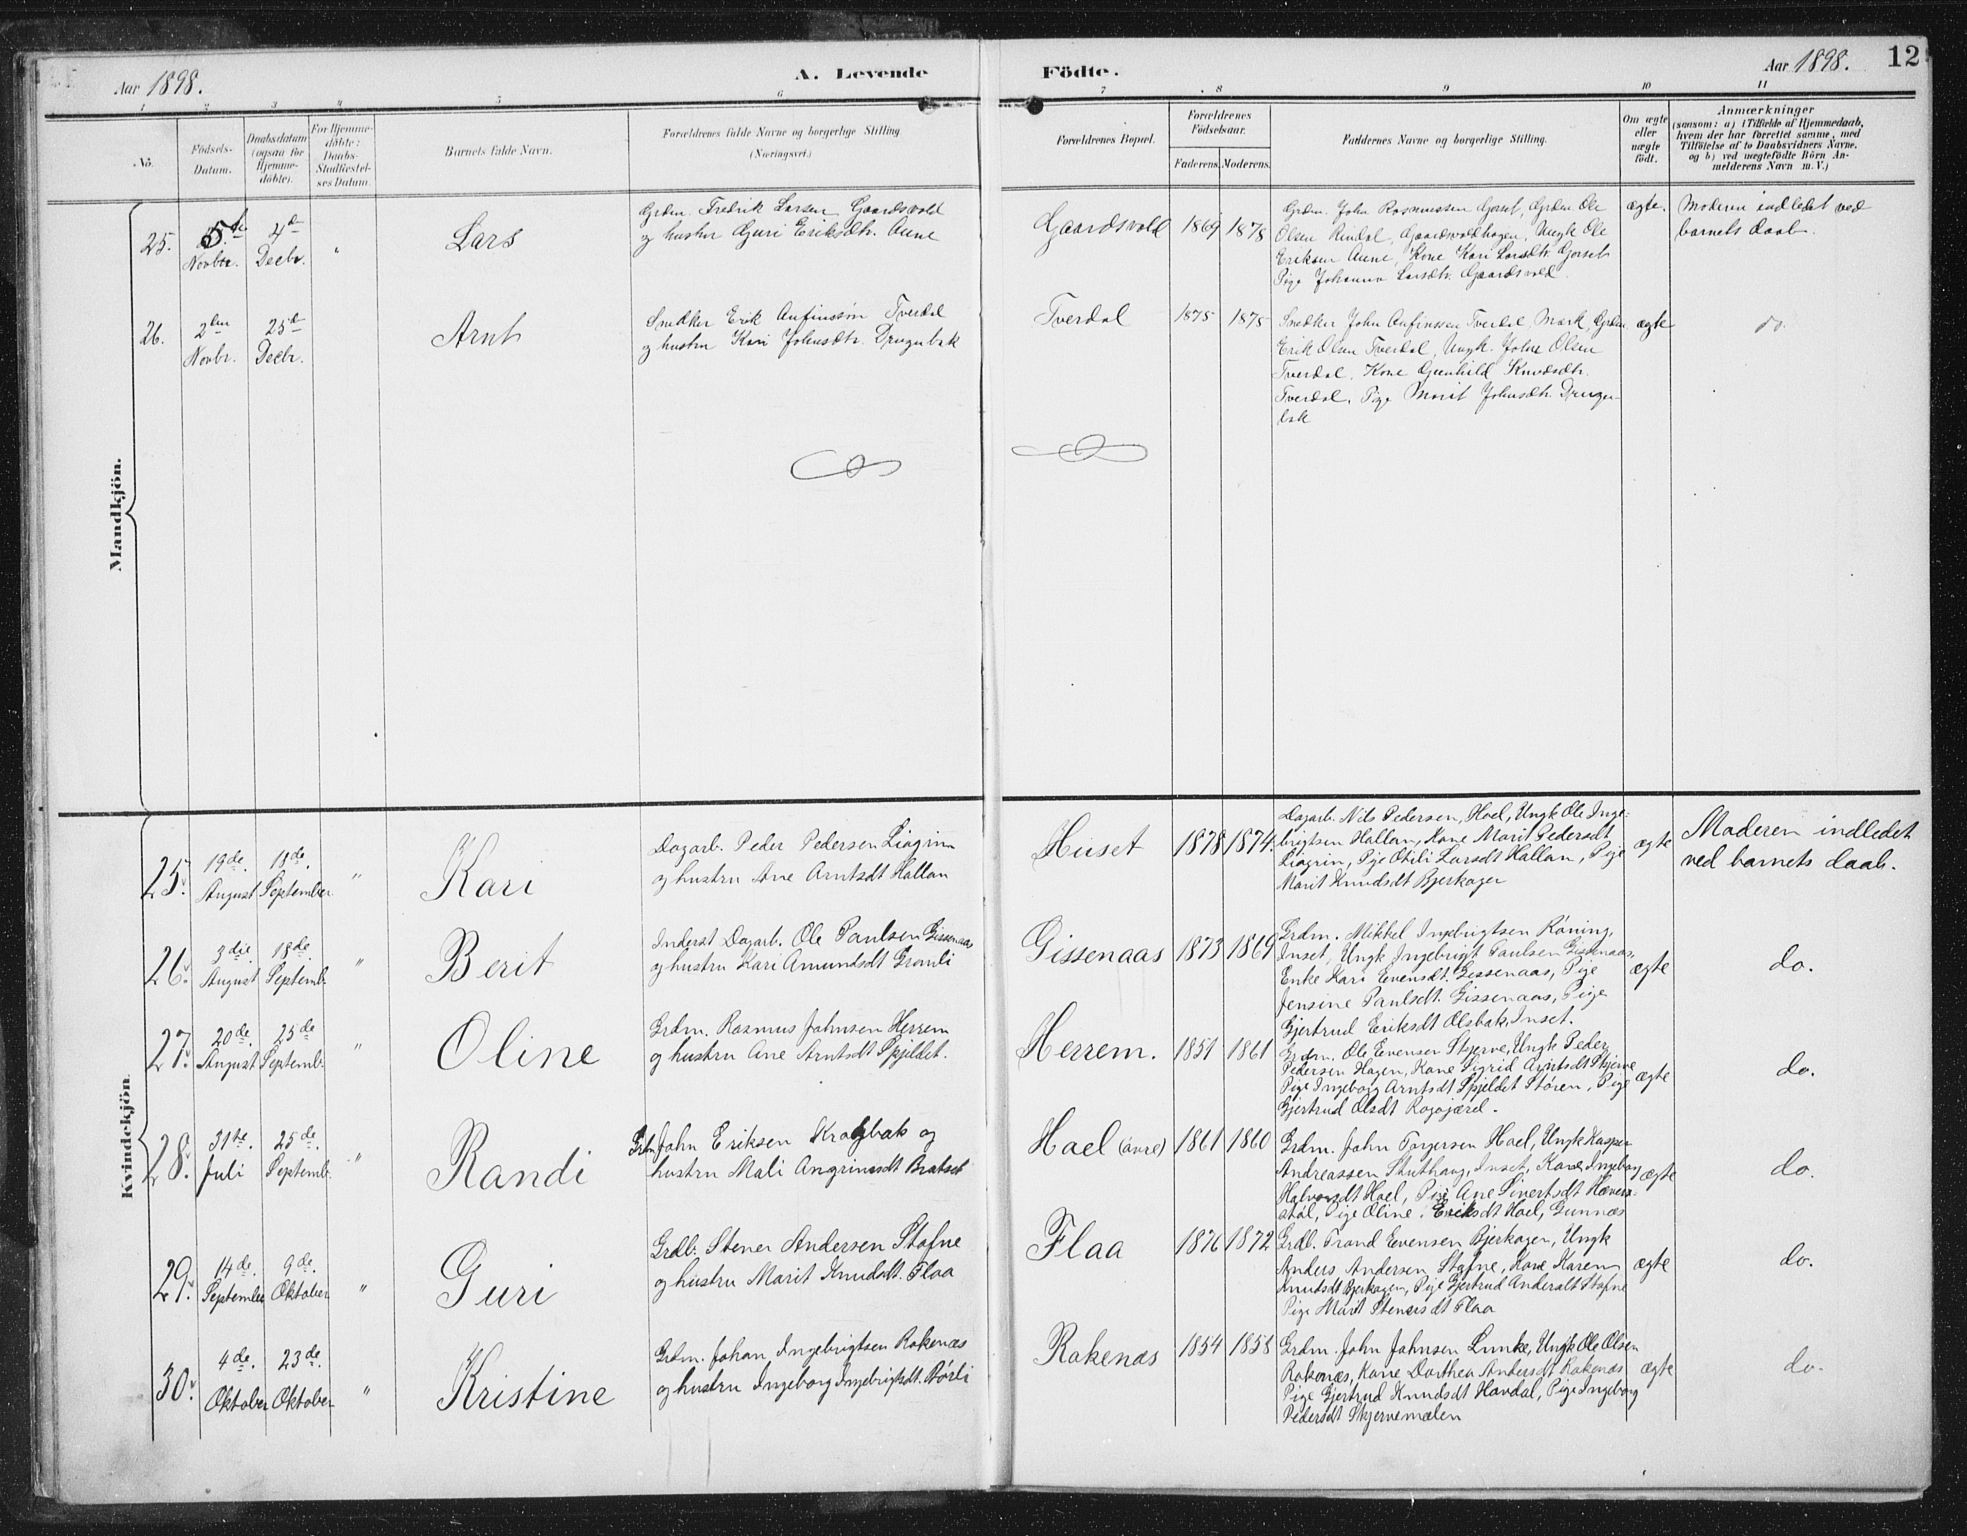 Aar 1898.
A. Levende
Födte.
Aar 1898.
12
1 2 3 4 5 6 7 8 9 10 11
No.
Födsels-
Datum.
Daabsdatum
(ogsaa for
Hjemme-
döbte).
For Hjemme-
döbte:
Daabs-
Stadfæstel-
ses Datum.
Barnets fulde Navn.
Forældrenes fulde Navne og borgerlige Stilling
(Næringsvei.)
Forældrenes Bopæl.
Forældrenes
Födselsaar.
Faderens. Moderens.
Faddernes Navne og borgerlige Stilling.
Om ægte
eller
uægte
födt.
Anmærkninger
(saasom: a) i Tilfælde af Hjemmedaab,
hvem der har forrettet samme, med
Tilföielse af to Daabsvidners Navne,
og b) ved uægtefödte Börn An-
melderens Navn m. V.)
Mandkjön.
25.
5te
Novbr.
4de
Decbr.
"
Lars
Grdm. Fredrik Larsen Gaardsvold
og hustru Guri Eriksdtr. Aune
Gaardsvold
1869 1878
Grdm. John Rasmussen Gorset, Grdm Ole
Olsen Rindal, Gaardsvoldhagen, Ungk Ole
Eriksen Aune, Kone Kari Larsdtr. Gorset
Pige Johanna Larsdtr. Gaardsvold.
ægte.
Moderen indledet ved
barnets daab.
26.
2den
Novbr.
25de
Decbr.
Arnt
Snedker Erik Anfinssøn Tverdal
og hustru Kari Johnsdtr. Drugubak
Tverdal
1875 1875
Snedker John Anfinssen Tverdal, Mærk, Grdm
Erik Olsen Tverdal, Ungk. John Olsen
Tverdal, Kone Gunhild Knudsdtr.
Tverdal, Pige Marit Johnsdtr. Drugu-
bak
ægte
do.
Kvindekjön.
25.
19de.
August
18de.
September
"
Kari
Dagarb. Peder Pedersen Liagrin
og hustru Ane Arntsdt Hallan
Huset
1878 1874.
Dagarb. Nils Pedersen, Hoel, Ungk Ole Inge-
brigtsen Hallan, Kone Marit Pedersdt
Liagrin, Pige Otili Larsdt Hallan, Pige
Marit Knudsdt Bjerkager
ægte
Moderen indledet
ved barnets daab.
26.
3die
August
18de.
Septemb.
"
Berit
Inderst Dagarb. Ole Paulsen Gissenaas
og hustru Kari Amundsdt Gronli
Gissenaas
1873 1869
Grdm. Mikkel Ingebrigtsen Røning,
Inset, Ungk Ingebrigt Paulsen Gissenaas,
Enke Kari Evensdt. Gissenaas, Pige
Jensine Paulsdt. Gissenaas, Pige
Gjertrud Eriksdt Olsbak, Inset.
ægte
do.
27.
20de.
August
25de
Septemb.
"
Oline
Grdm. Rasmus Johnsen Herrem
og hustru Ane Arntsdt Spjeldet.
Herrem.
1851 1861
Grdm. Ole Evensen Skjerve, Ungk Peder
Pedersen Hagen, Kone Sigrid Arntsdt Skjerve
Pige Ingeborg Arntsdt Spjeldet Støren, Pige
Gjertrud Olsdt Rogogjærd.
ægte
do.
28.
31te.
Juli
25de
Septemb.
"
Randi
Grdm John Eriksen Kragbak og
hustru Mali Angrimsdt Bratset
Hael (øvre)
1861 1860
Grdm. John Torgersen Hoel, Ungk Kasper
Andreassen Stuthaug, Inset, Kone Ingeborg
Halvorsdt Hoel, Pige Ane Sivertsdt Hævers-
støl, Pige Oline Eriksdt Hoel, Gunnes
ægte
do.
29.
14de.
September
9de.
Oktober
"
Guri
Grdb. Stener Andersen Stafne
og hustru Marit Knudsdt. Flaa
Flaa
1876 1872
Grdb. Trond Evensen Bjerkager, Ungk
Anders Andersen Stafne, Kone Karen
Knudsdt Bjerkager, Pige Gjertrud Andersdt Stafne
Pige Marit Stenersdt Flaa
ægte
do.
30.
4de.
Oktober
23de.
Oktober
"
Kristine
Grdm. Johan Ingebrigtsen Rokenæs
og hustru Ingeborg Ingebrigtsdt. Børli
Rokenæs
1854 1858
Grdm. John Johnsen Lunke, Ungk Ole Olsen
Rokenæs, Kone Dorthea Andersdt Rokenæs
Pige Gjertrud Knudsdt Havdal, Pige Ingeborg
Pedersdt Skjervemælen
ægte
do.